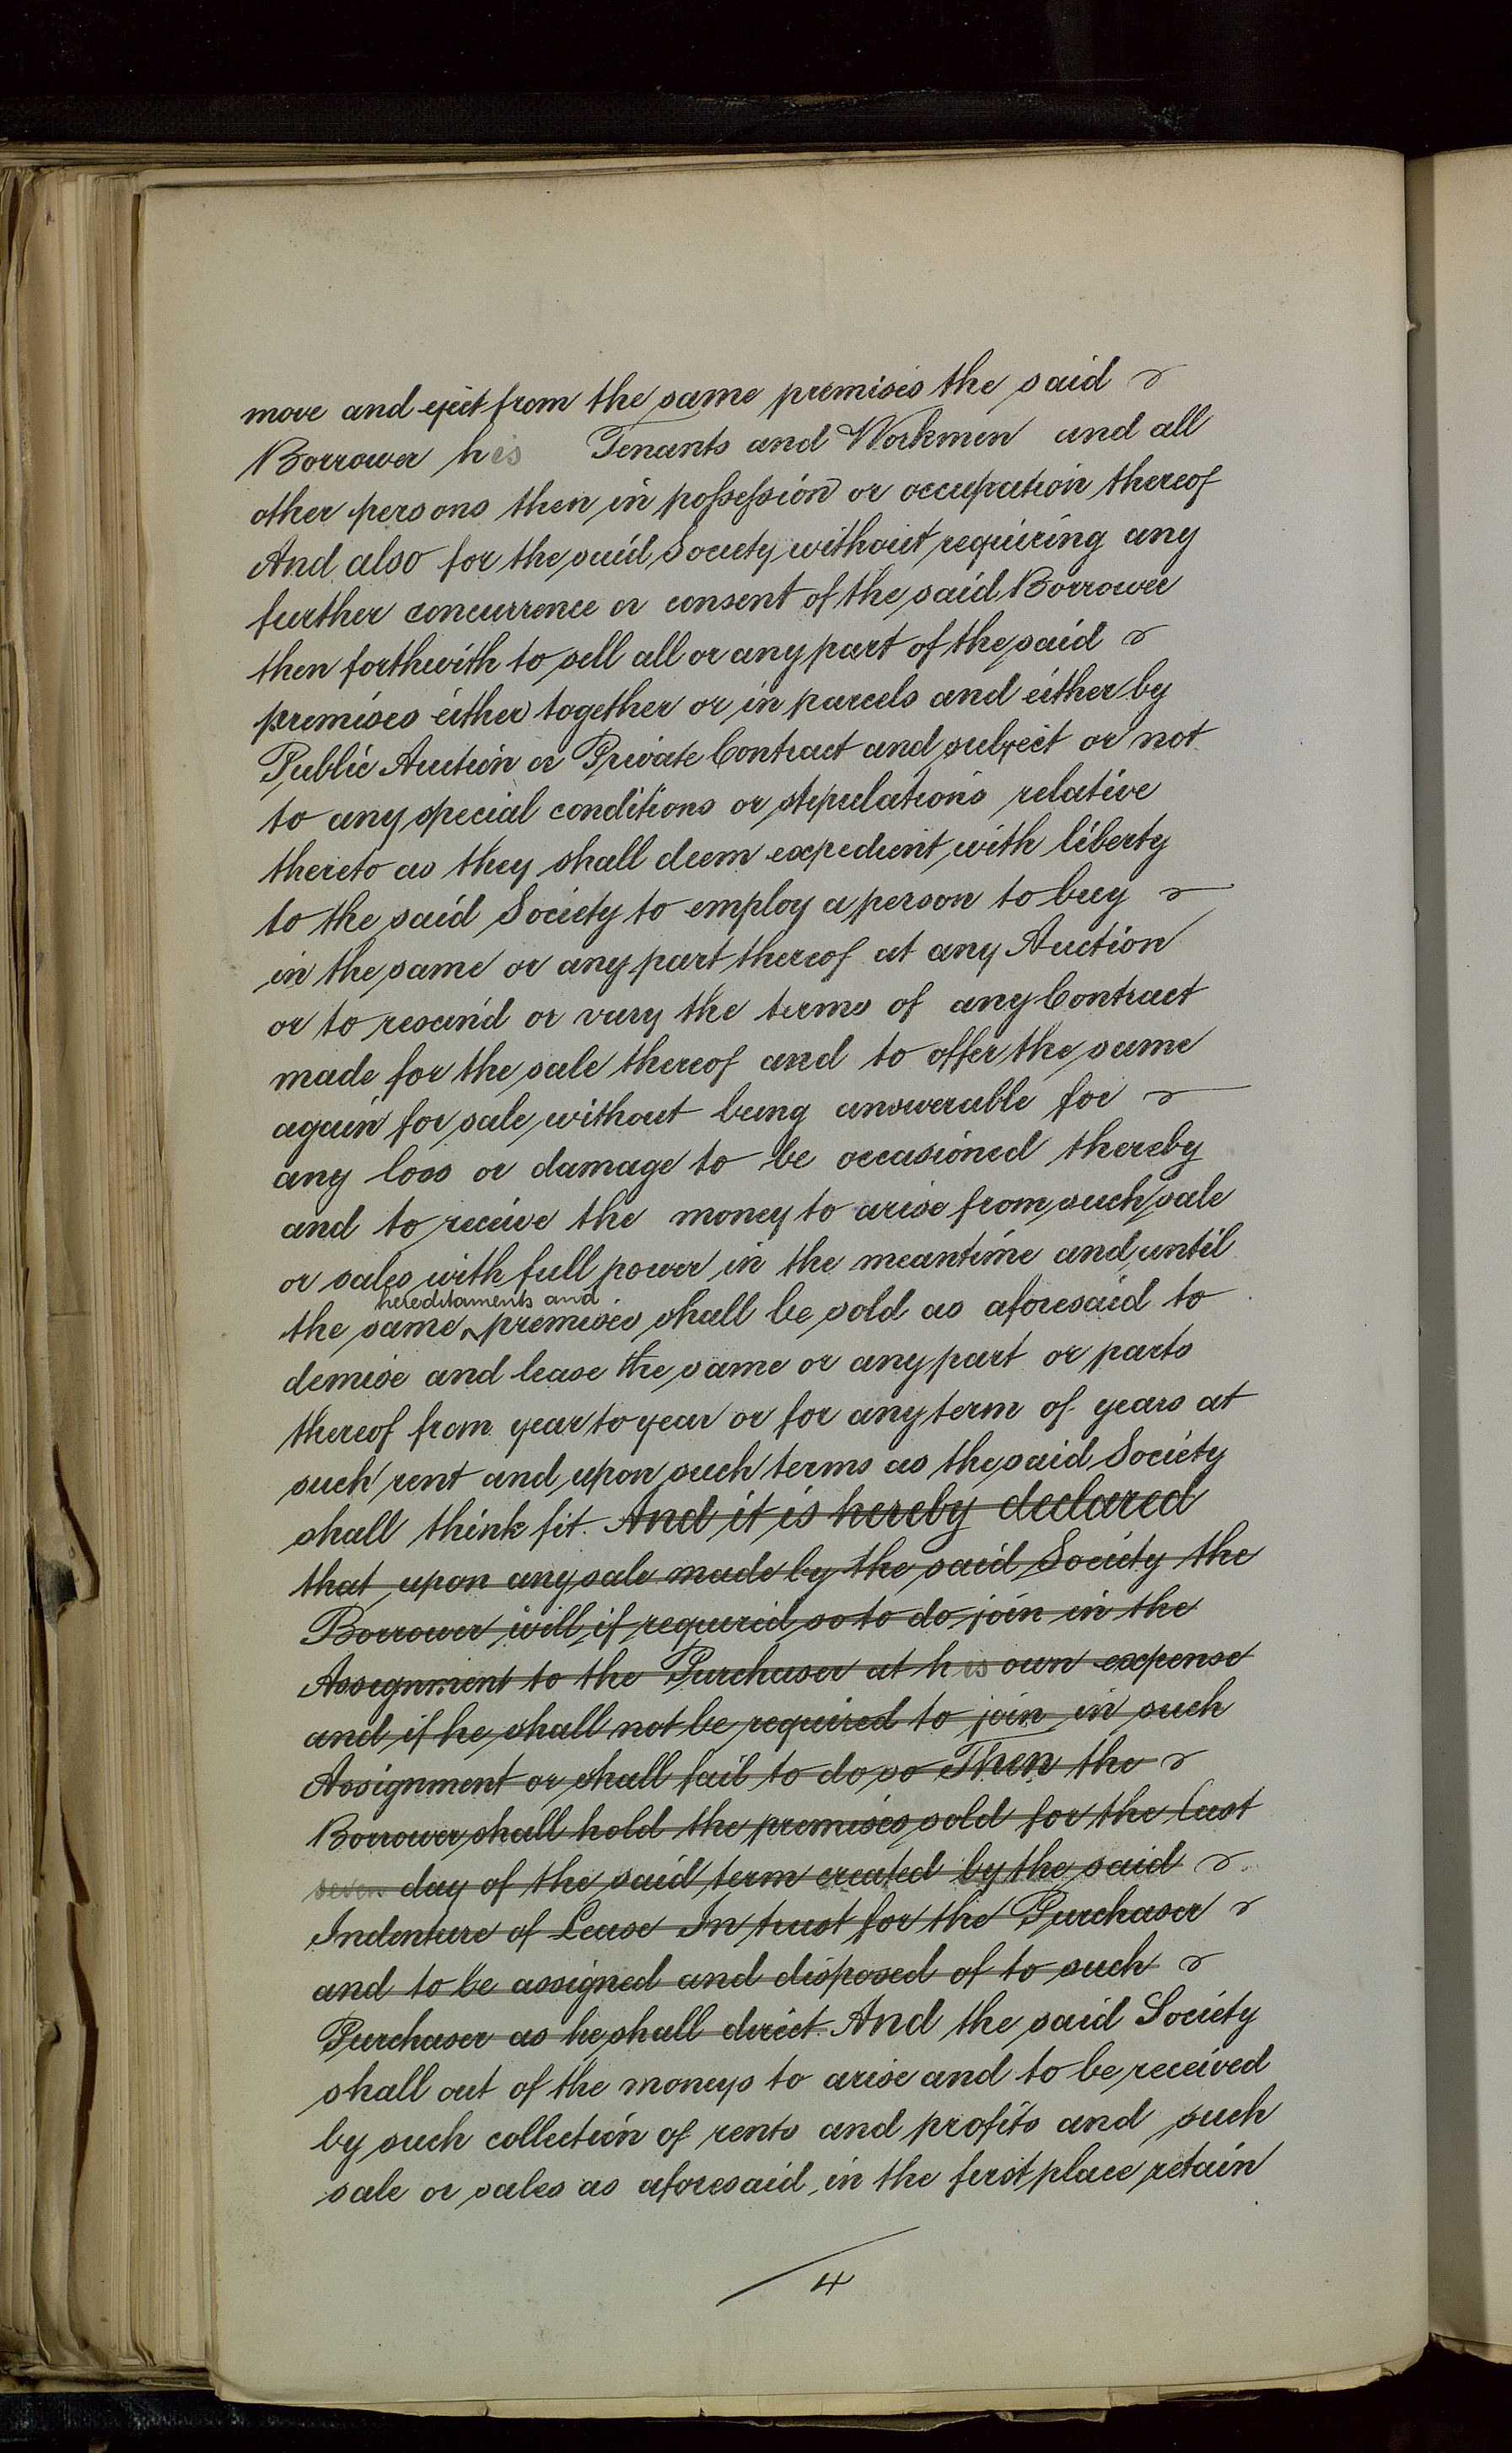 move and eject from the same premises the said
Borrower his Tenants and Workmen and all
other persons then in possession or occupation thereof
And also for the said Society without requiring any
further concurrence or consent of the said Borrower
then forthwith to sell all or any part of the said
premises either together or in parcels and either by
Public Auction or Private Contract and subject or not
to any special conditions or stipulations relative
thereto as they shall deem expedient with liberty
to the said Society to employ a person to buy
in the same or any part thereof at any Auction
or to rescind or vary the terms of any Contract
made for the sale thereof and to offer the same
again for sale without being answerable for
any loss or damage to be occasioned thereby
and to receive the money to arise from such sale
or sales with full power in the meantime and until
hereditaments and
the same premises shall be sold as aforesaid to
demise and lease the same or any part or parts
thereof from year to year or for any term of years at
such rent and upon such terms as the said Society
shall think fit. And it is hereby declared
that upon any sale made by the said Society the
Borrower will if required so to do join in the
Assignment to the Purchaser at his own expense
and if he shall not be required to join in such
Assignment or shall fail to do so Then the
Borrower shall hold the premises sold for the last
seven day of the said term created by the said
Indenture of Lease In trust for the Purchaser
and to be assigned and disposed of to such
Purchaser as he shall direct. And the said Society
shall out of the moneys to arise and to be received
by such collection of rents and profits and such
sale or sales as aforesaid in the first place retain
4